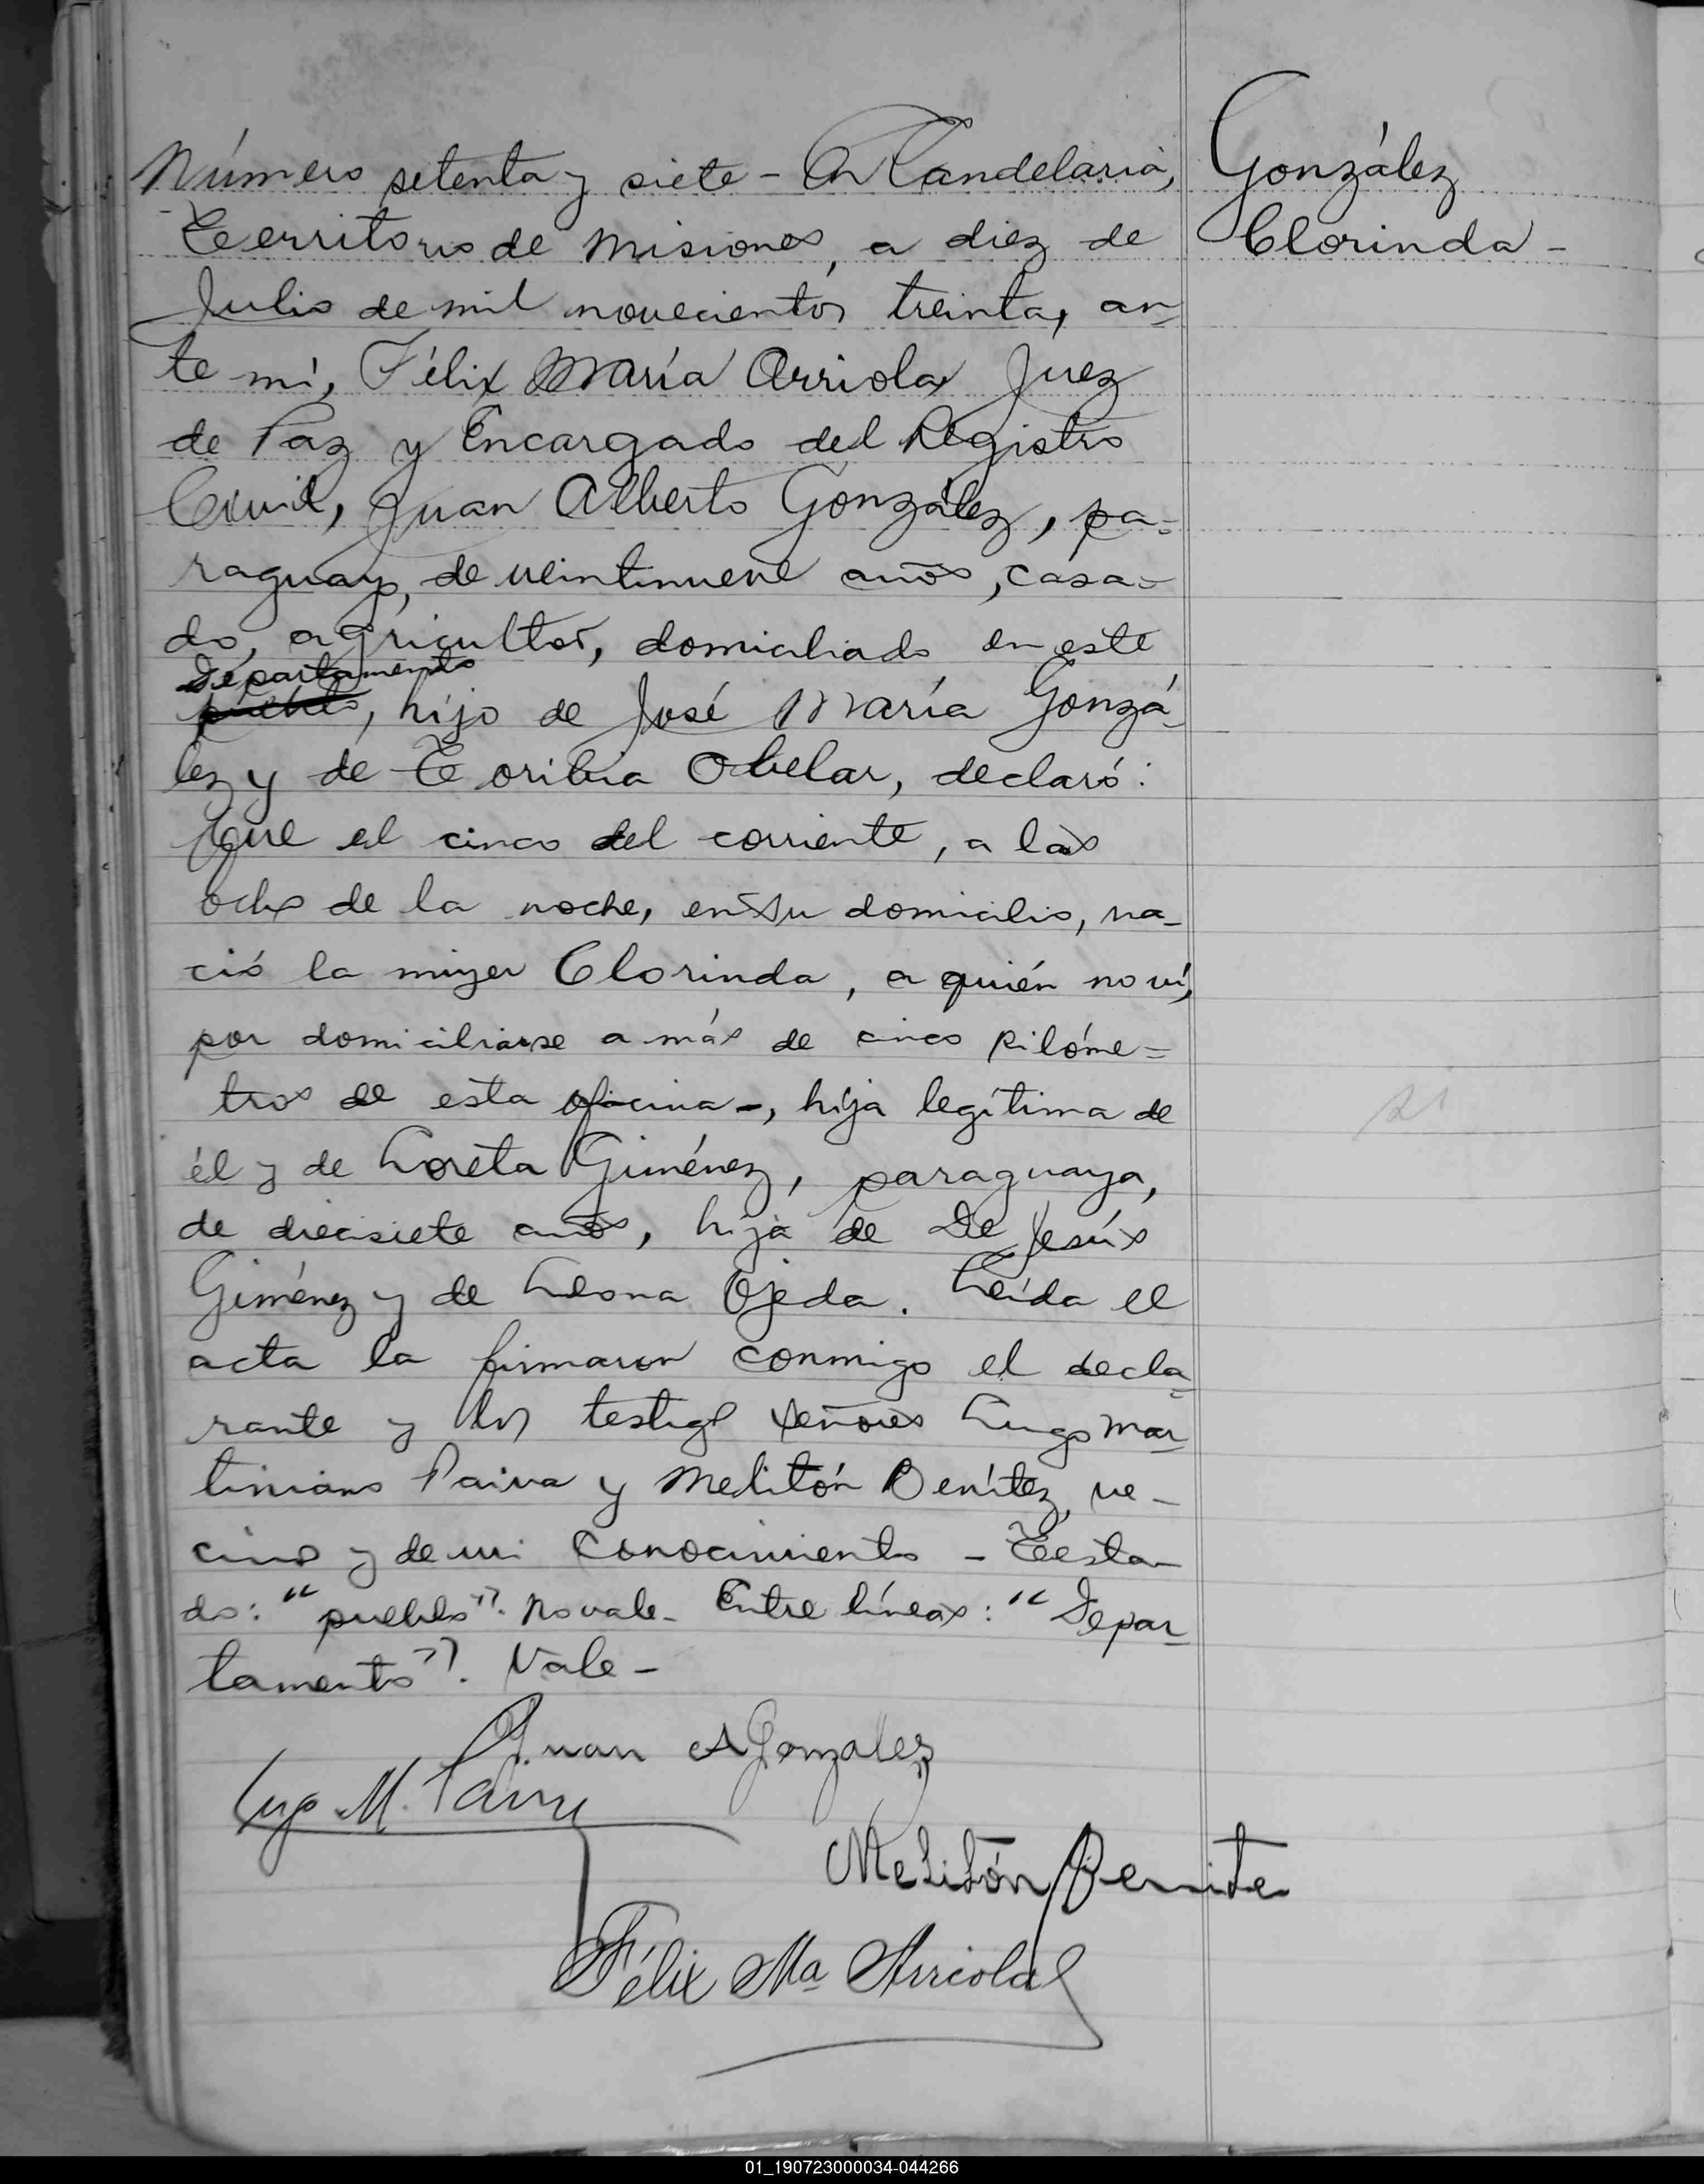 Número setenta y siete - En Candelaria,
Territorio de Misiones, a diez de
Julio de mil novecientos treinta, an-
te mí, Félix María Arriola Juez
de Paz y Encargado del Registro
Civil, Juan Alberto González, pa=
raguayo, de veintinueve años, casa=
do, agricultor, domiciliado en este
Departamento
pueblo, hijo de José María Gonzá-
lez y de Toribia Obelar, declaró:
Que el cinco del corriente, a las
ocho de la noche, en su domicilio, na-
ció la mujer Clorinda, a quién no ví,
por domiciliarse a más de cinco kilóme=
tros de esta oficina-, hija legítima de
él y de Loreta Giménez, paraguaya,
de diecisiete años, hija de De Jesús
Giménez y de Leona Ojeda. Leída el
acta la firmaron conmigo el decla-
rante y los testigos señores Lugo Mar-
tiniano Paiva y Melitón Benítez, ve-
cinos y de mi conocimiento - Testa-
do: "pueblo". No vale- Entre líneas: "Depar-
tamento". Vale-
González
Clorinda-
Juan A Gonzalez
Lugo M. Paiva
Melitón Benite
Félix Ma Arriola
01_190723000034-044266